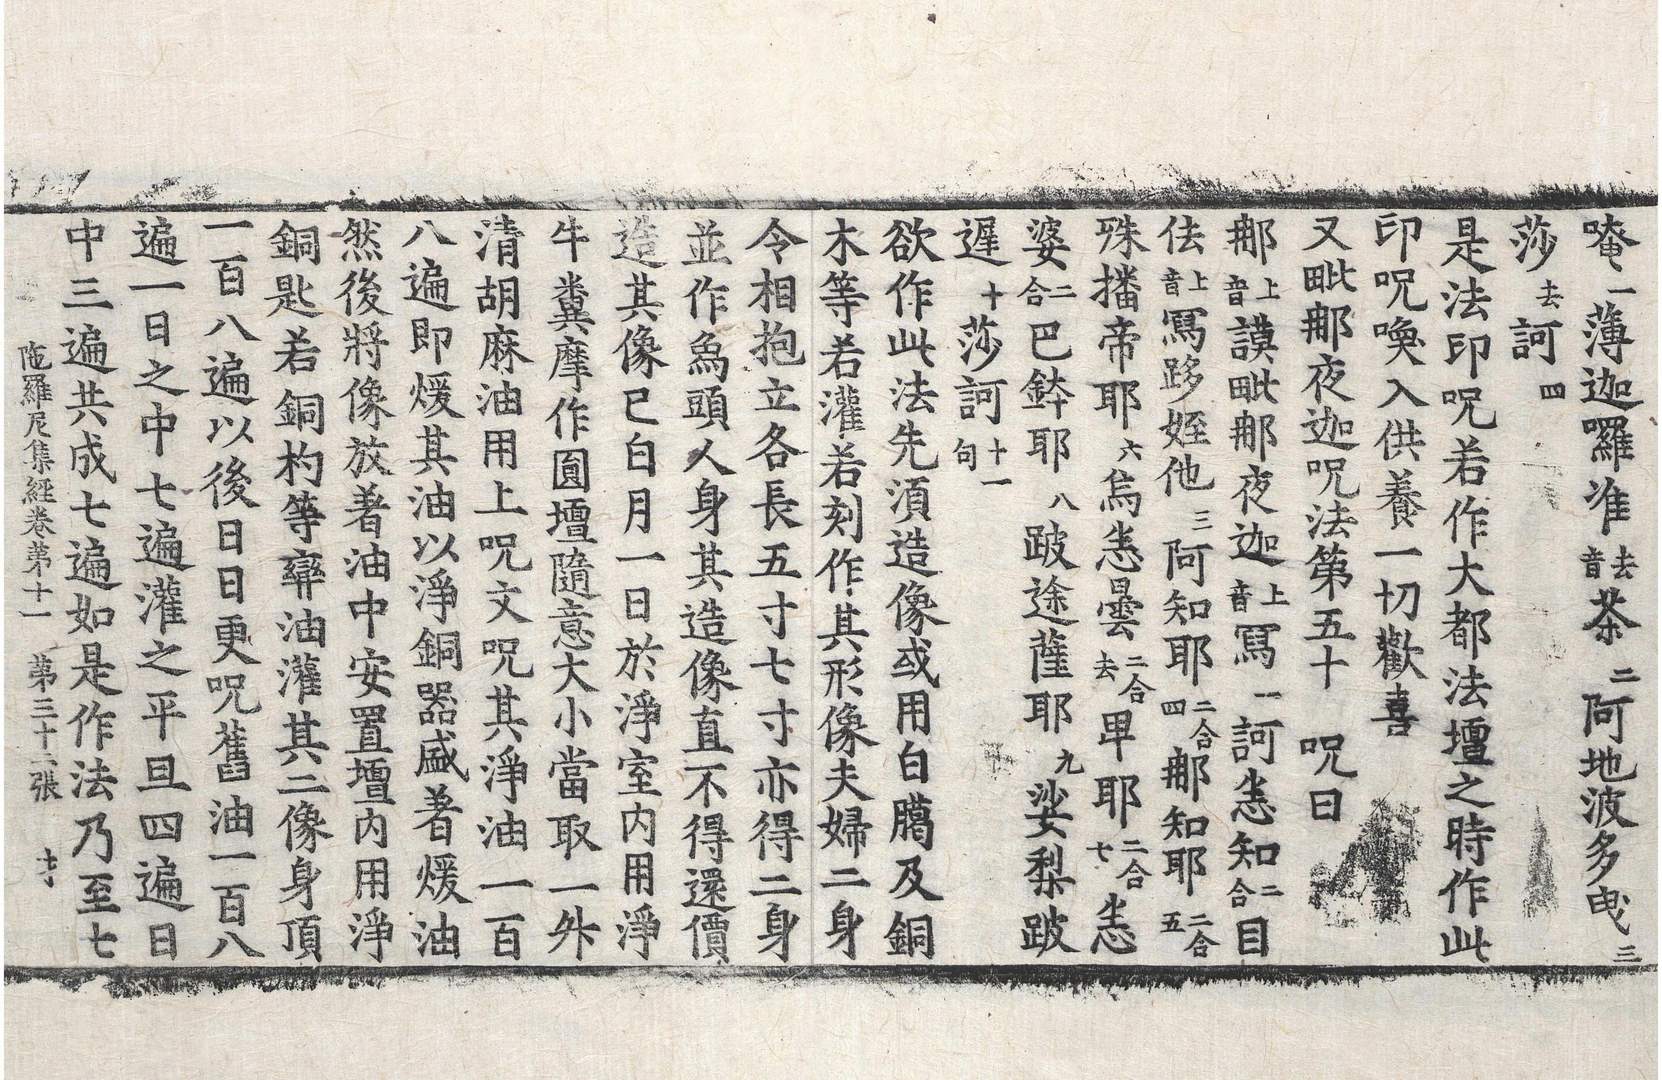 唵一薄迦囉准去音荼二阿地波多曳三
莎去訶四
是法印呪若作大都法壇之時作此
印呪喚入供養一切歡喜
又毗那夜迦呪法第五十 呪曰
那上音謨毗那夜迦上音寫一訶悉知二合目
佉上音寫跢姪他三阿知耶二合四那知耶二合五
殊播帝耶六烏悉曇二合去卑耶二合七悉
婆二合巴鉢耶八跛途薩耶九娑梨跛
遲十莎訶十一句
欲作此法先須造像或用白䤵及銅
木等若灌若刻作其形像夫婦二身
令相抱立各長五寸七寸亦得二身
並作象頭人身其造像直不得還價
造其像已白月一日於淨室內用淨
牛糞摩作圓壇隨意大小當取一升
清胡麻油用上呪文呪其淨油一百
八遍即煖其油以淨銅器盛著煖油
然後將像放著油中安置壇內用淨
銅匙若銅杓等㪻油灌其二像身頂
一百八遍以後日日更呪舊油一百八
遍一日之中七遍灌之平旦四遍日
中三遍共成七遍如是作法乃至七
陁羅尼集經卷第十一 第三十二張 才